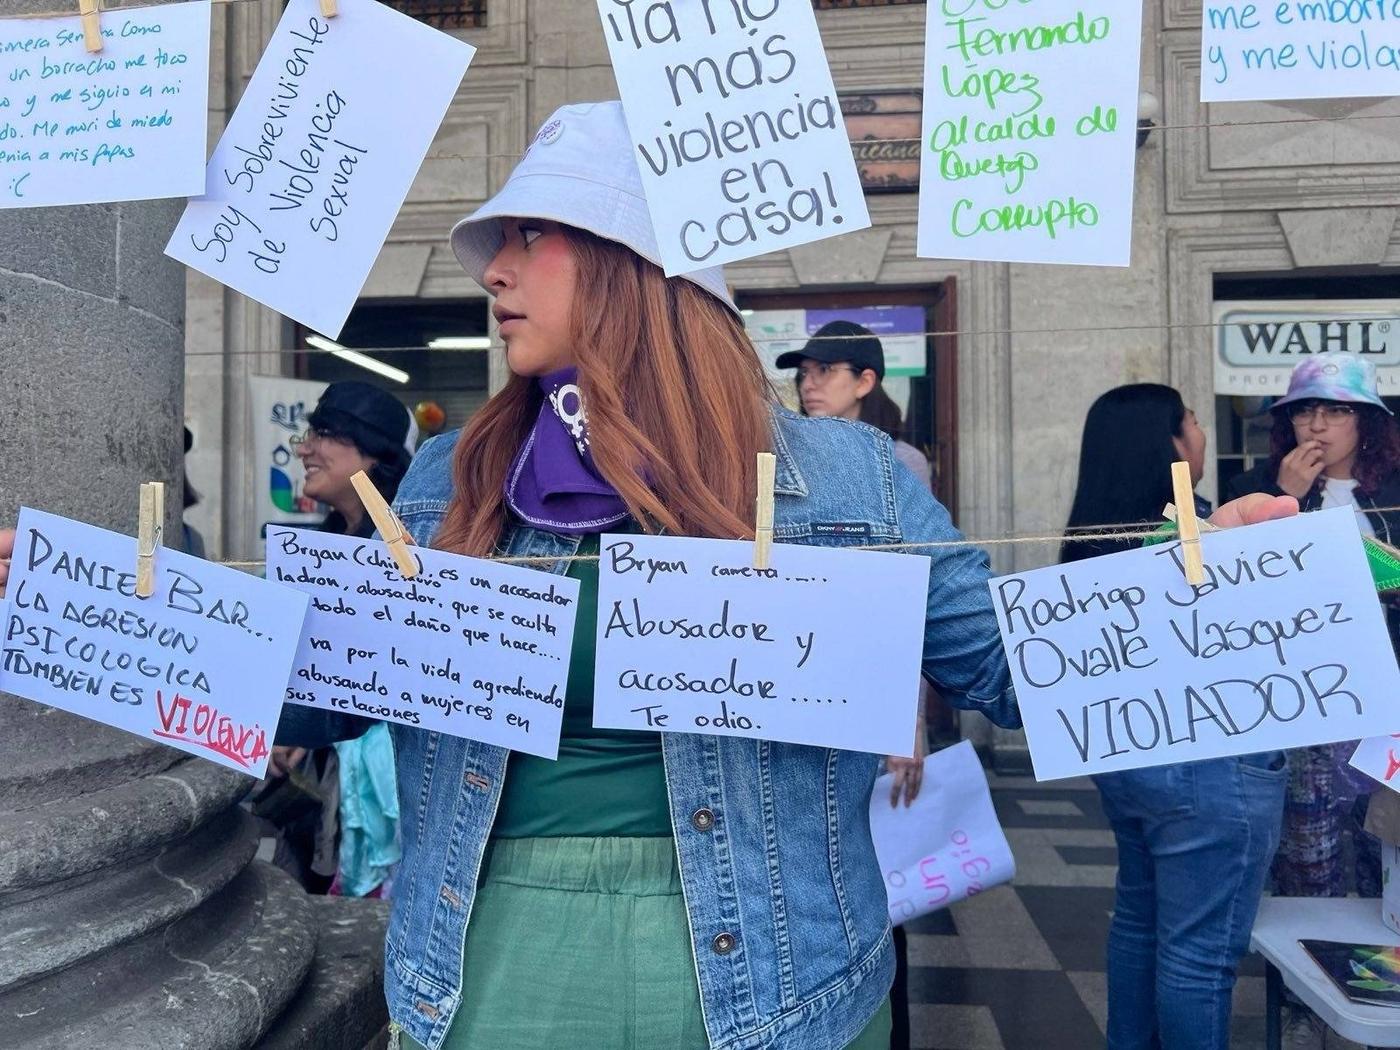 un borracho me toco
y me siguio a mi
Me mori de miedo
a mis papas
:(
Soy Sobreviviente
de Violencia
Sexual
¡Ya no
más
violencia
en
casa!
Fernando
López
alcalde de
Corrupto
y me viola
WAHL®
DANIE BAR...
LA AGRESION
PSICOLOGICA
TAMBIEN ES VIOLENCIA
Bryan es un acosador
ladron, abusador, que se oculta
todo el daño que hace....
va por la vida agrediendo
abusando a mujeres en
sus relaciones
Bryan
Abusador y
acosador .....
Te odio.
Rodrigo Javier
Ovalle Vasquez
VIOLADOR
DKNY JEANS
un